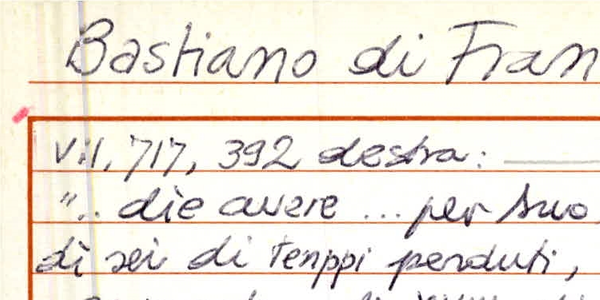 Bastiano di Fran
VII, 717, 392 destra:
".. die avere ... per suo
dì sei di tenppi perduti,